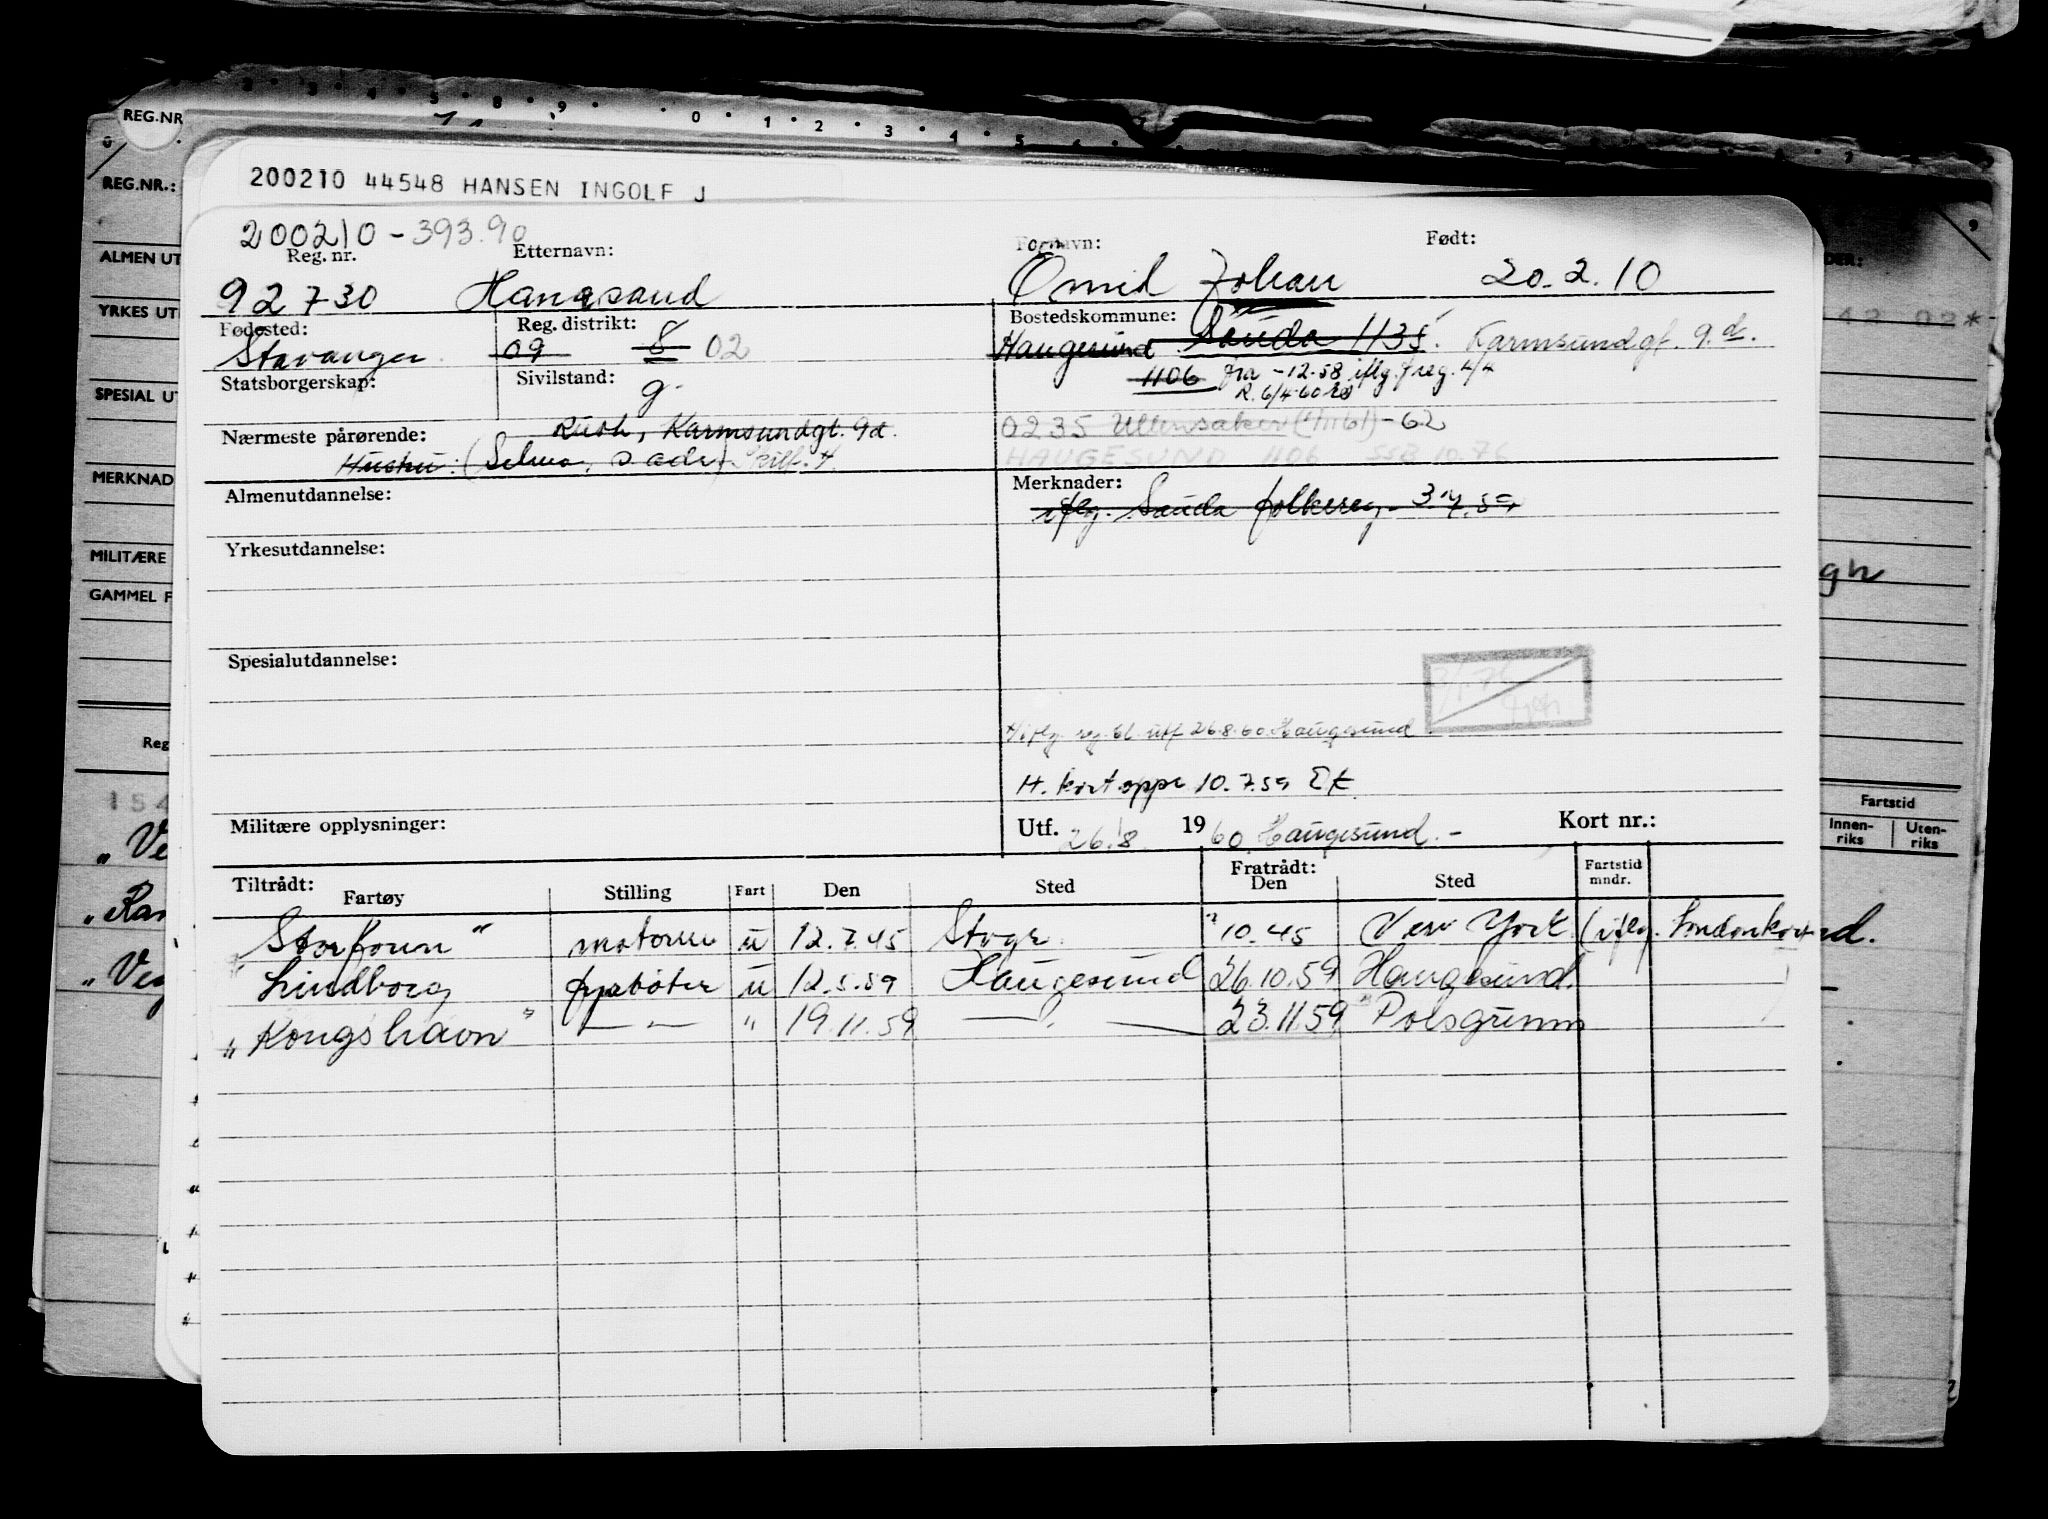 REG.NR
REG.NR.:
ALMEN UT
YRKES UT
SPECIAL UT
MERKNAD
MILITÆRE
GAMMEL F
Reg
154
"Ve
"Ran
"Veg
200210 44548 HANSEN INGOLF J
200210 - 393.90
Reg. nr. Etternavn: Fornavn: Født:
92730 Hanasand Ømid Johan 20.2.10
Fødested: Reg. distrikt: Bostedskommune:
Stavanger 09 8 02 Haugesund Sauda 1135. Karmsundgt. 9.d.
Statsborgerskap: Sivilstand: 1106 fra -12.58 iflg. freg. 4/4
g. R. 6/4-60
Nærmeste pårørende: Ruth, Karmsundgt. 9d. 0235 Ullensaker -62
Hustru: (Selma, s. adr) HAUGESUND 1106 SSB 10.76
Almenutdannelse: Merknader:
iflg. Sauda folkereg.
Yrkesutdannelse:
Spesialutdannelse:
iflg. reg. bl. utf 26.8.60 Haugesund
H. kort oppr 10.7.59
Militære opplysninger: Utf. 26/8 1960 Haugesund. - Kort nr.:
Tiltrådt: Fratrådt:
Fartøy Stilling Fart Den Sted Den Sted Fartstid mndr.
"Storfonn" motorm u 12.7.45 10.45 New York (iflg. Londonkort
"Lindborg fyrbøter u 12.5.59 Haugesund 26.10.59 Haugesund.
"Kongshavn" — " — " 19.11.59 — " — 23.11.59 Porsgrunn
Fartstid
Innen-
riks
Uten-
riks